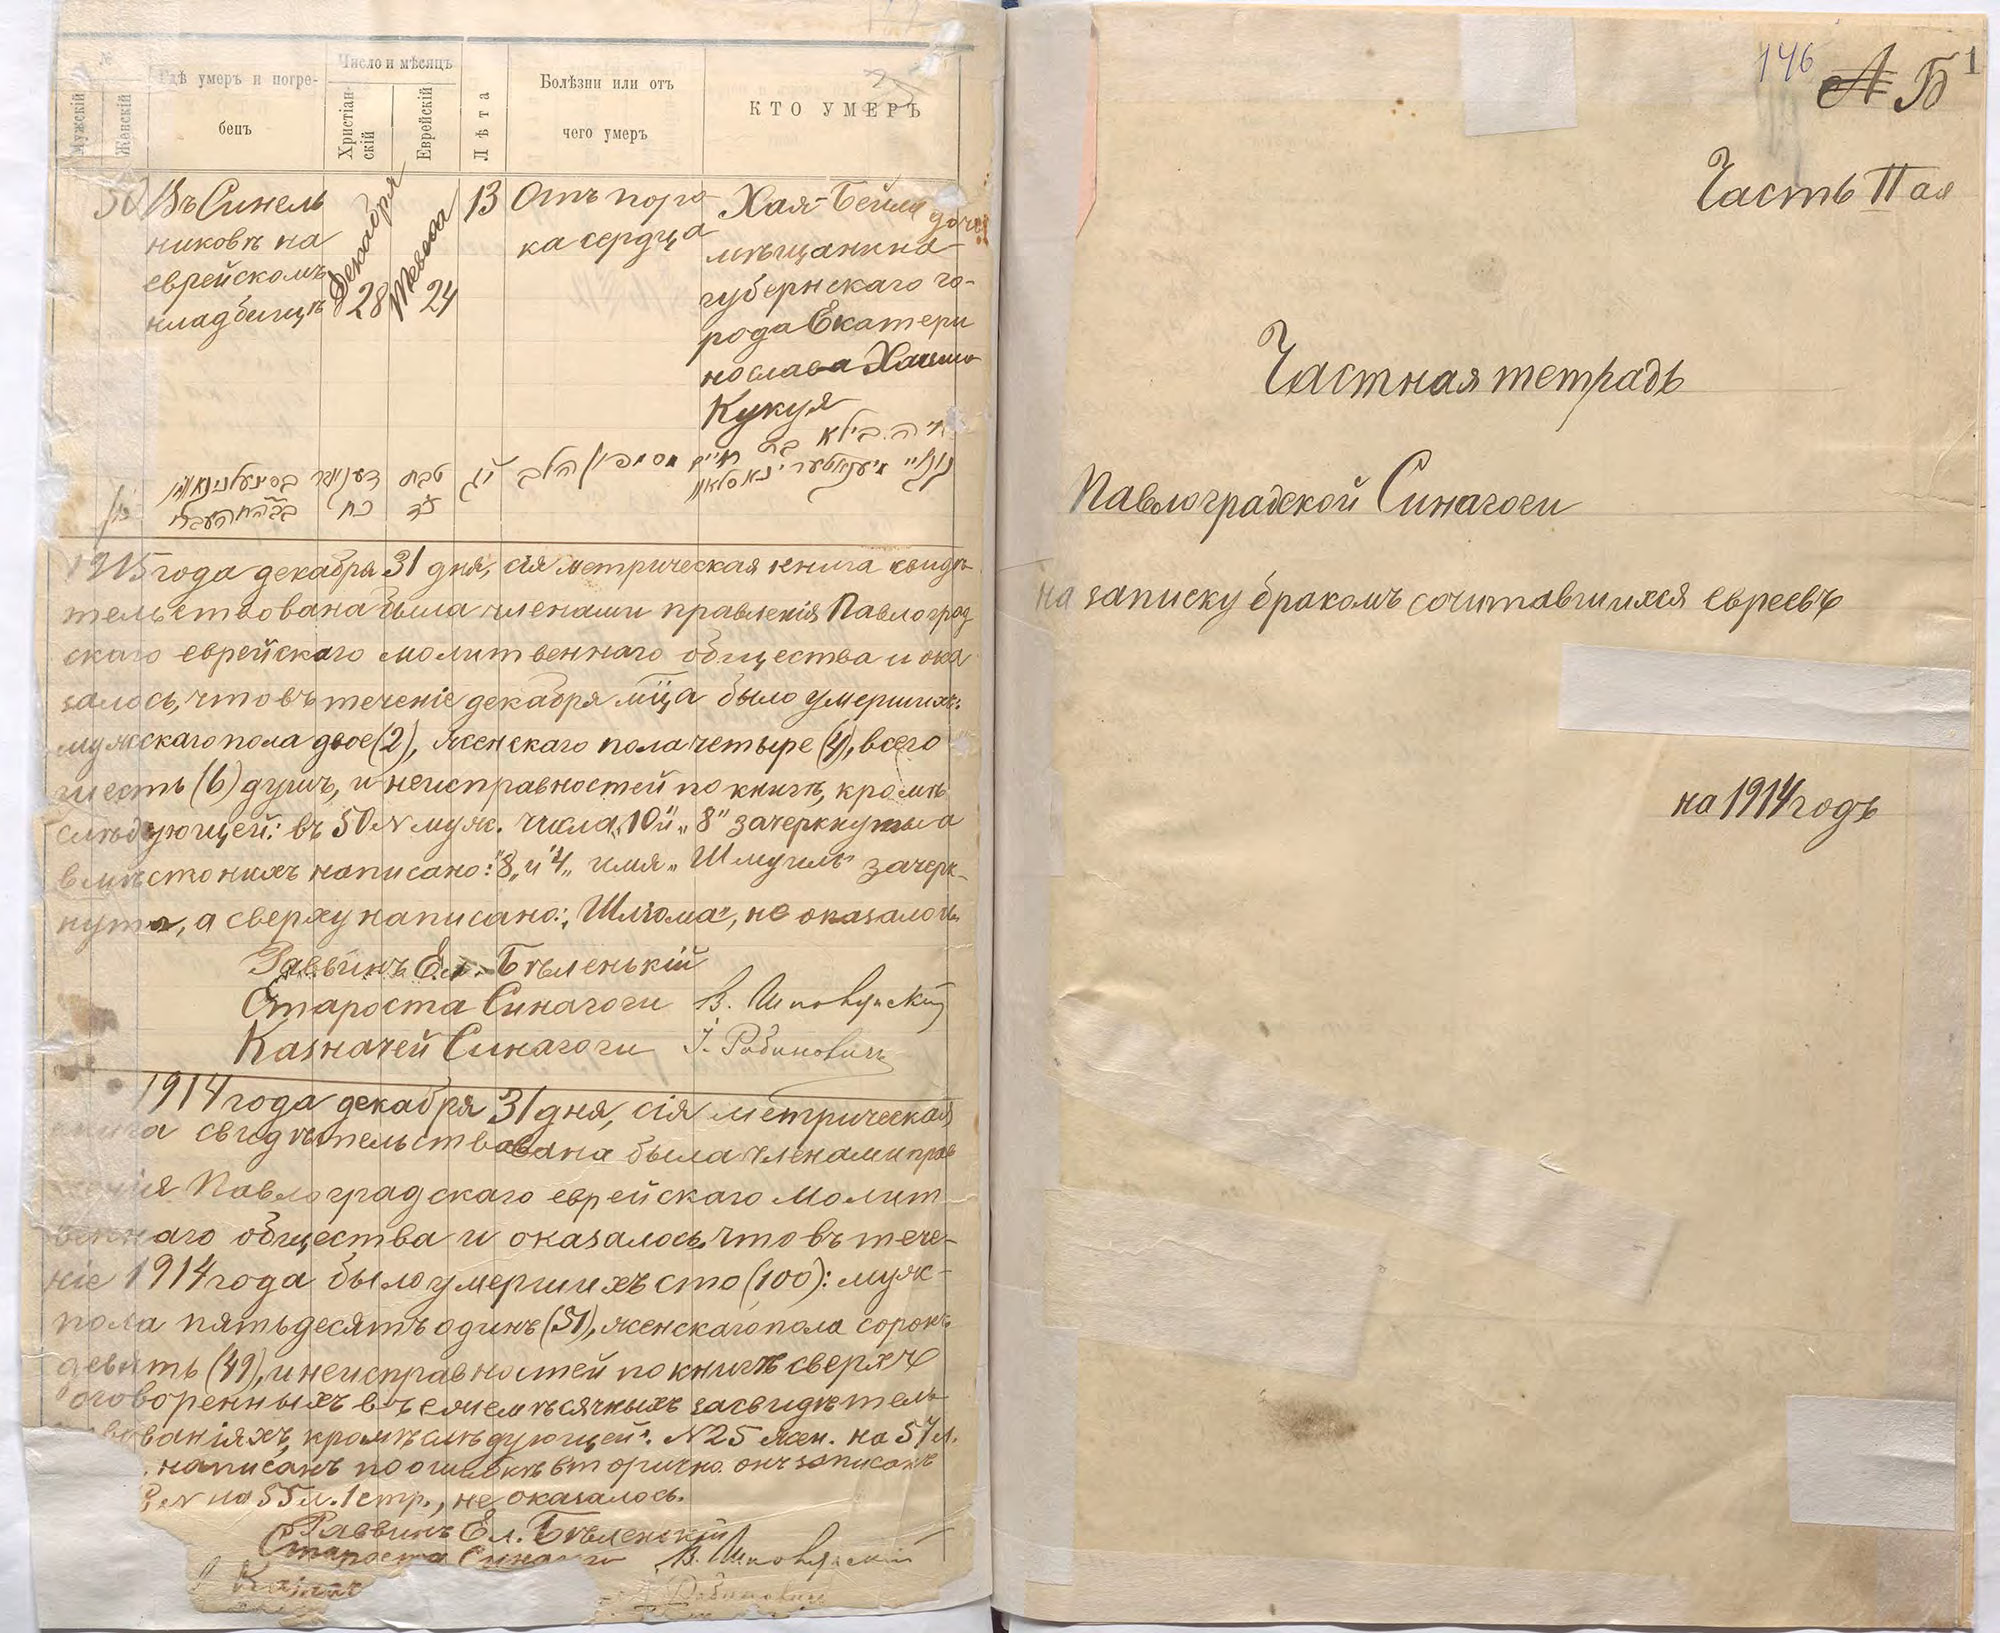 №
Мужскій
Женскій
Гдѣ умеръ и погре-
бенъ
Число и мѣсяцъ
Христіан-
скій
Еврейскій
Лѣта
Болѣзни или отъ
чего умеръ
КТО УМЕРЪ
50
Въ Синель
никовѣ на
еврейскомъ
кладбищѣ
Декабря
28
Тевеса
24
13
Отъ поро
ка сердца
Хая-Бейла дочь
мѣщанина
губернскаго го-
рода Екатери
нослава Хаима
Кукуя
1915 года декабря 31 дня, сія метрическая книга свидѣ
тельствована была членами правленія Павлоград
скаго еврейскаго молитвеннаго общества и ока
залось, что въ теченіе декабря мца было умершихъ:
мужскаго пола двое (2), женскаго пола четыре (4), всего
шесть (6) душъ, и неисправностей по книгѣ, кромѣ
слѣдующей: въ 50 N муж. числа „10 и „8" зачеркнуты а
вмѣсто нихъ написано: "8„ и "4„ имя „Шмуиль" зачерк-
нуто, а сверху написано: „Шлома", не оказалось.
Раввинъ Ел. Бѣленькій
Староста Синагоги
Казначей Синагоги І. Рабиновичъ
1914 года декабря 31 дня, сія метрическая
книга свидѣтельствована была членами прав
ленія Павлоградскаго еврейскаго молит
веннаго общества и оказалось, что въ тече-
ніе 1914 года было умершихъ сто (100): муж-
пола пятьдесятъ одинъ (51), женскаго пола сорокъ
девять (49), и неисправностей по книгѣ сверхъ
оговоренныхъ въ ежемѣсячныхъ засвидѣтель
ствованіяхъ, кромѣ слѣдующей: N 25 жен. на 57 л.
написанъ по ошибкѣ вторично онъ записанъ
N на 55 л. 1 стр., не оказалось.
Раввинъ Ел. Бѣленькій
Староста Синаго
146
А Б 1
Часть II ая
Частная тетрадь
Павлоградской Синагоги
на записку бракомъ сочитавшихся евреевъ
на 1914 годъ